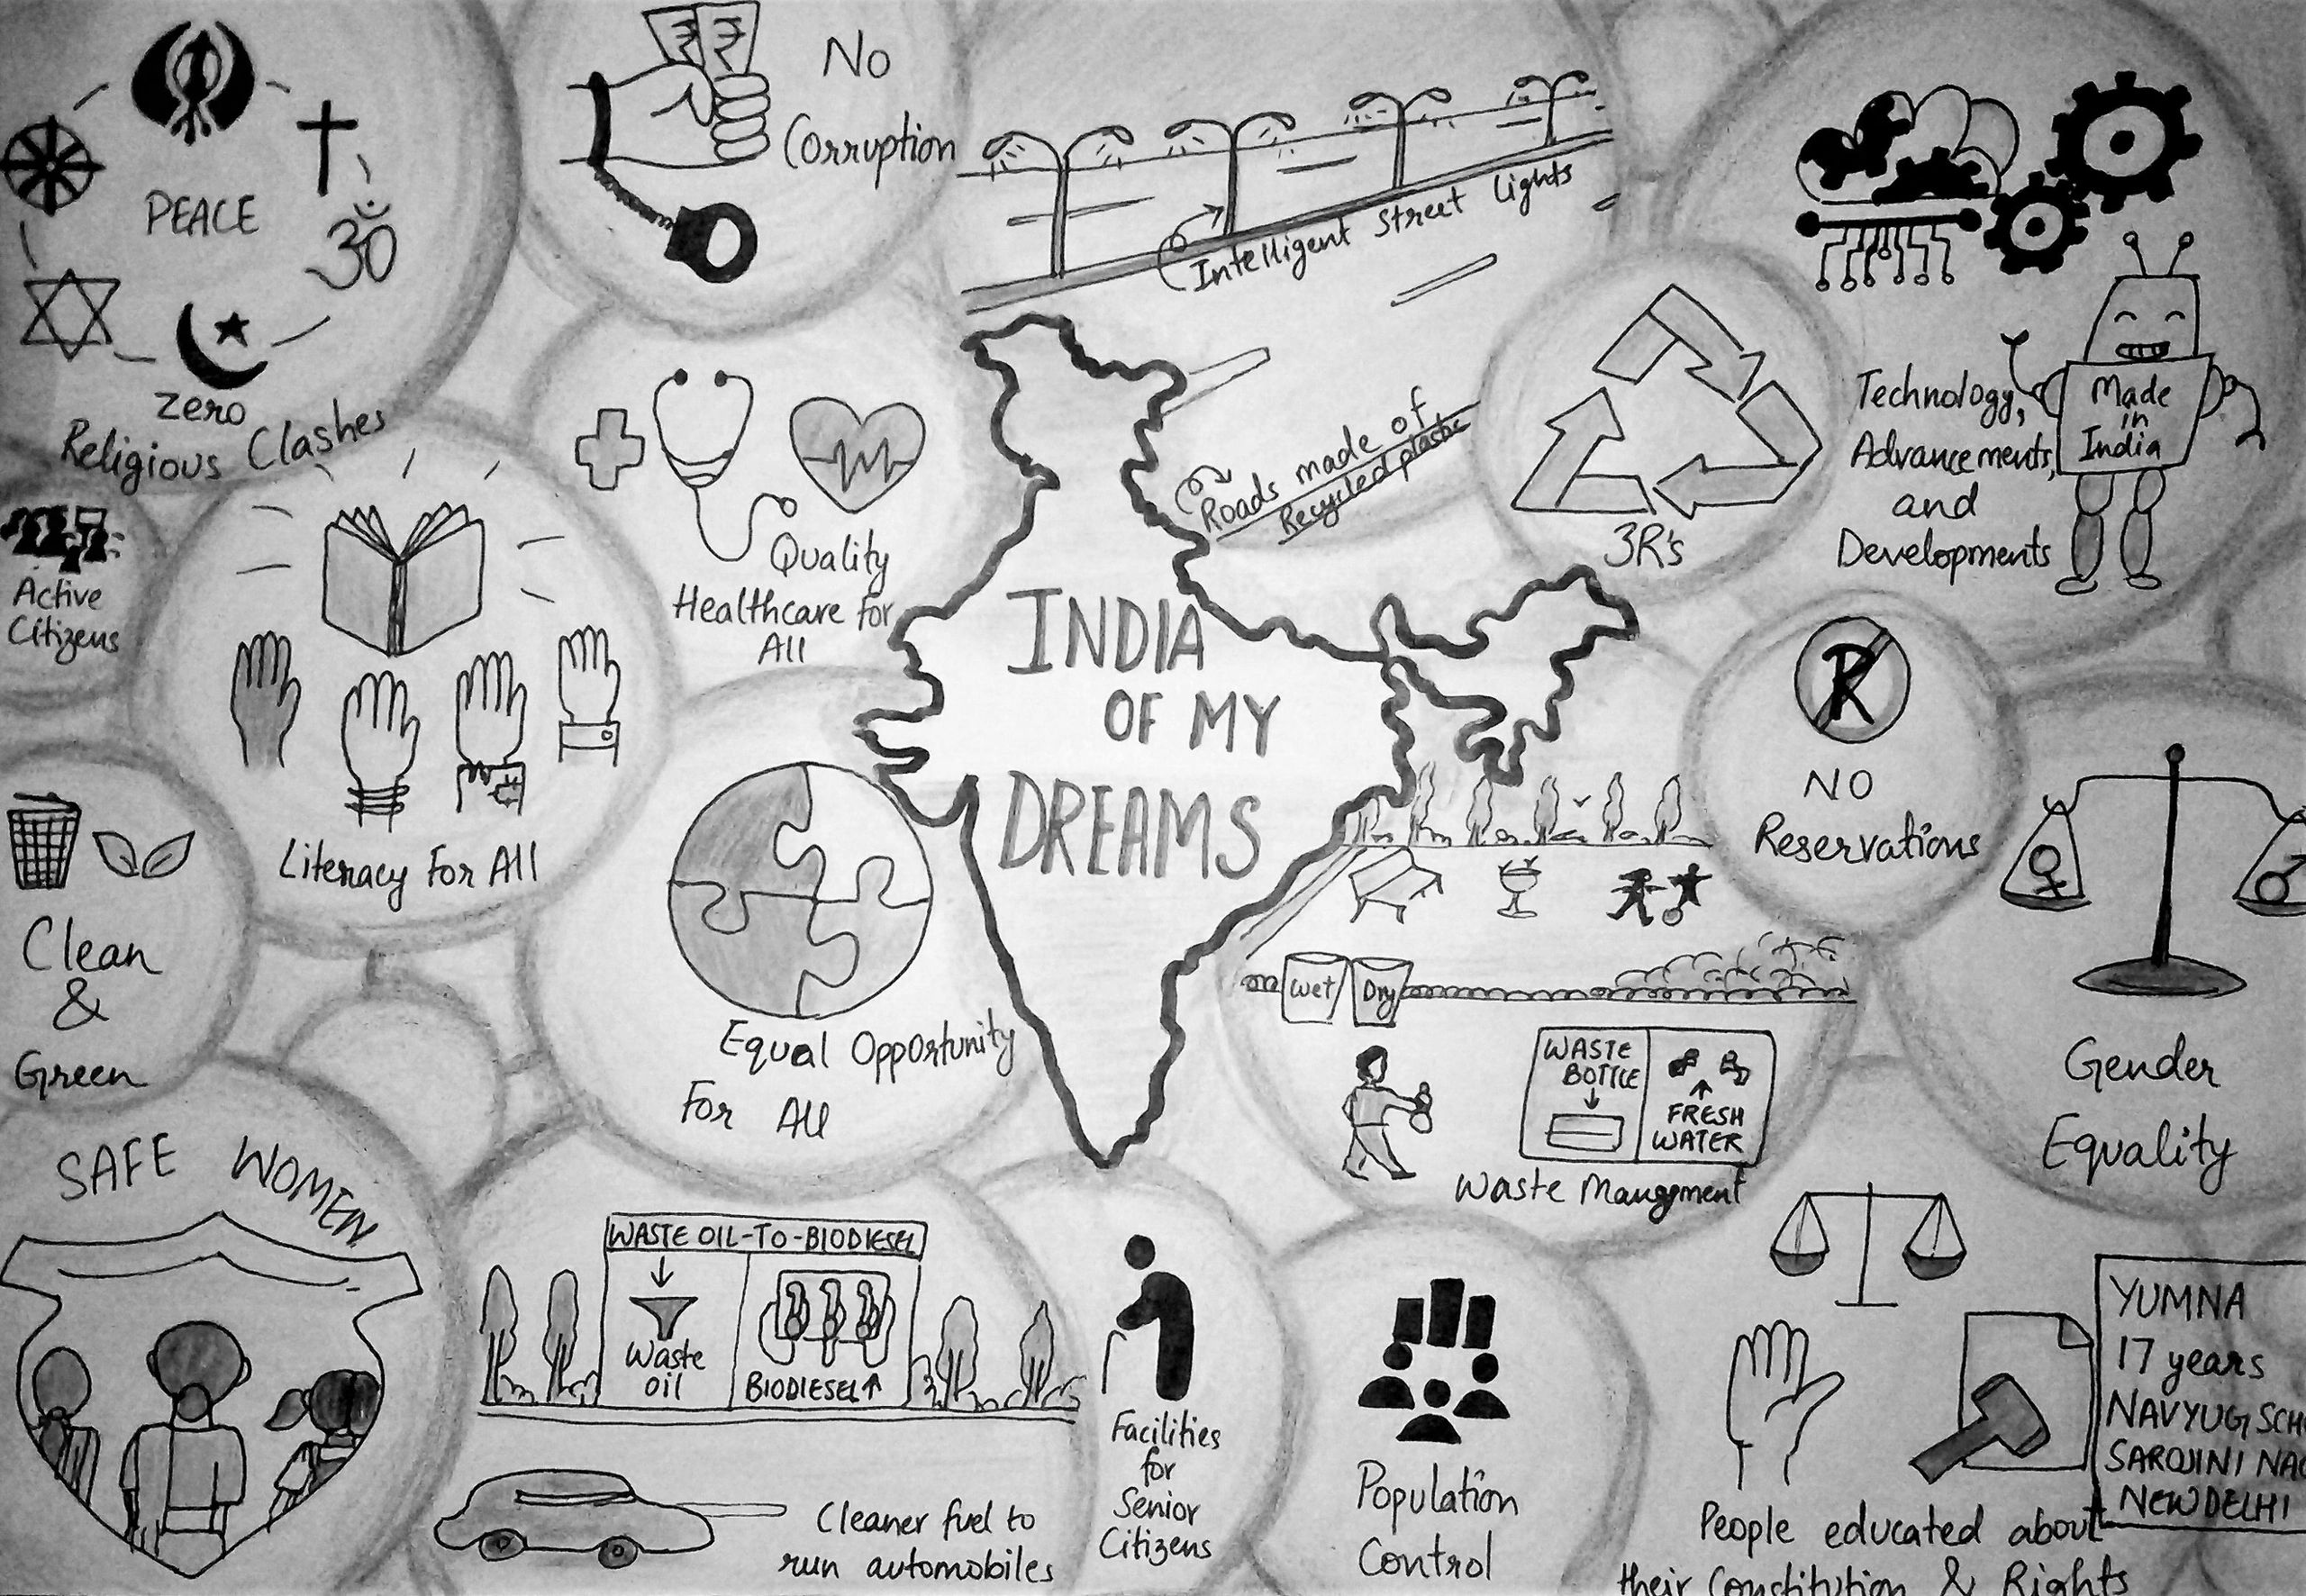 PEACE
ॐ
Zero
Religious Clashes
₹ ₹
No
Corruption
Intelligent Street Lights
Roads made of
Recycled plastic
3R's
Technology,
Advancements,
and
Developments
Made
in
India
Active
Citizens
Literacy For All
Quality
Healthcare for
All
INDIA
OF MY
DREAMS
R
NO
Reservations
Clean
&
Green
Equal Opportunity
For All
Wet
Dry
WASTE
BOTTLE
FRESH
WATER
Waste Managment
Gender
Equality
SAFE WOMEN
WASTE OIL-TO-BIODIESEL
Waste
oil
BIODIESEL
Cleaner fuel to
run automobiles
Facilities
for
Senior
Citizens
Population
Control
People educated about
their Constitution & Rights
YUMNA
17 years
NAVYUG SCH
SAROJINI NAG
NEW DELHI